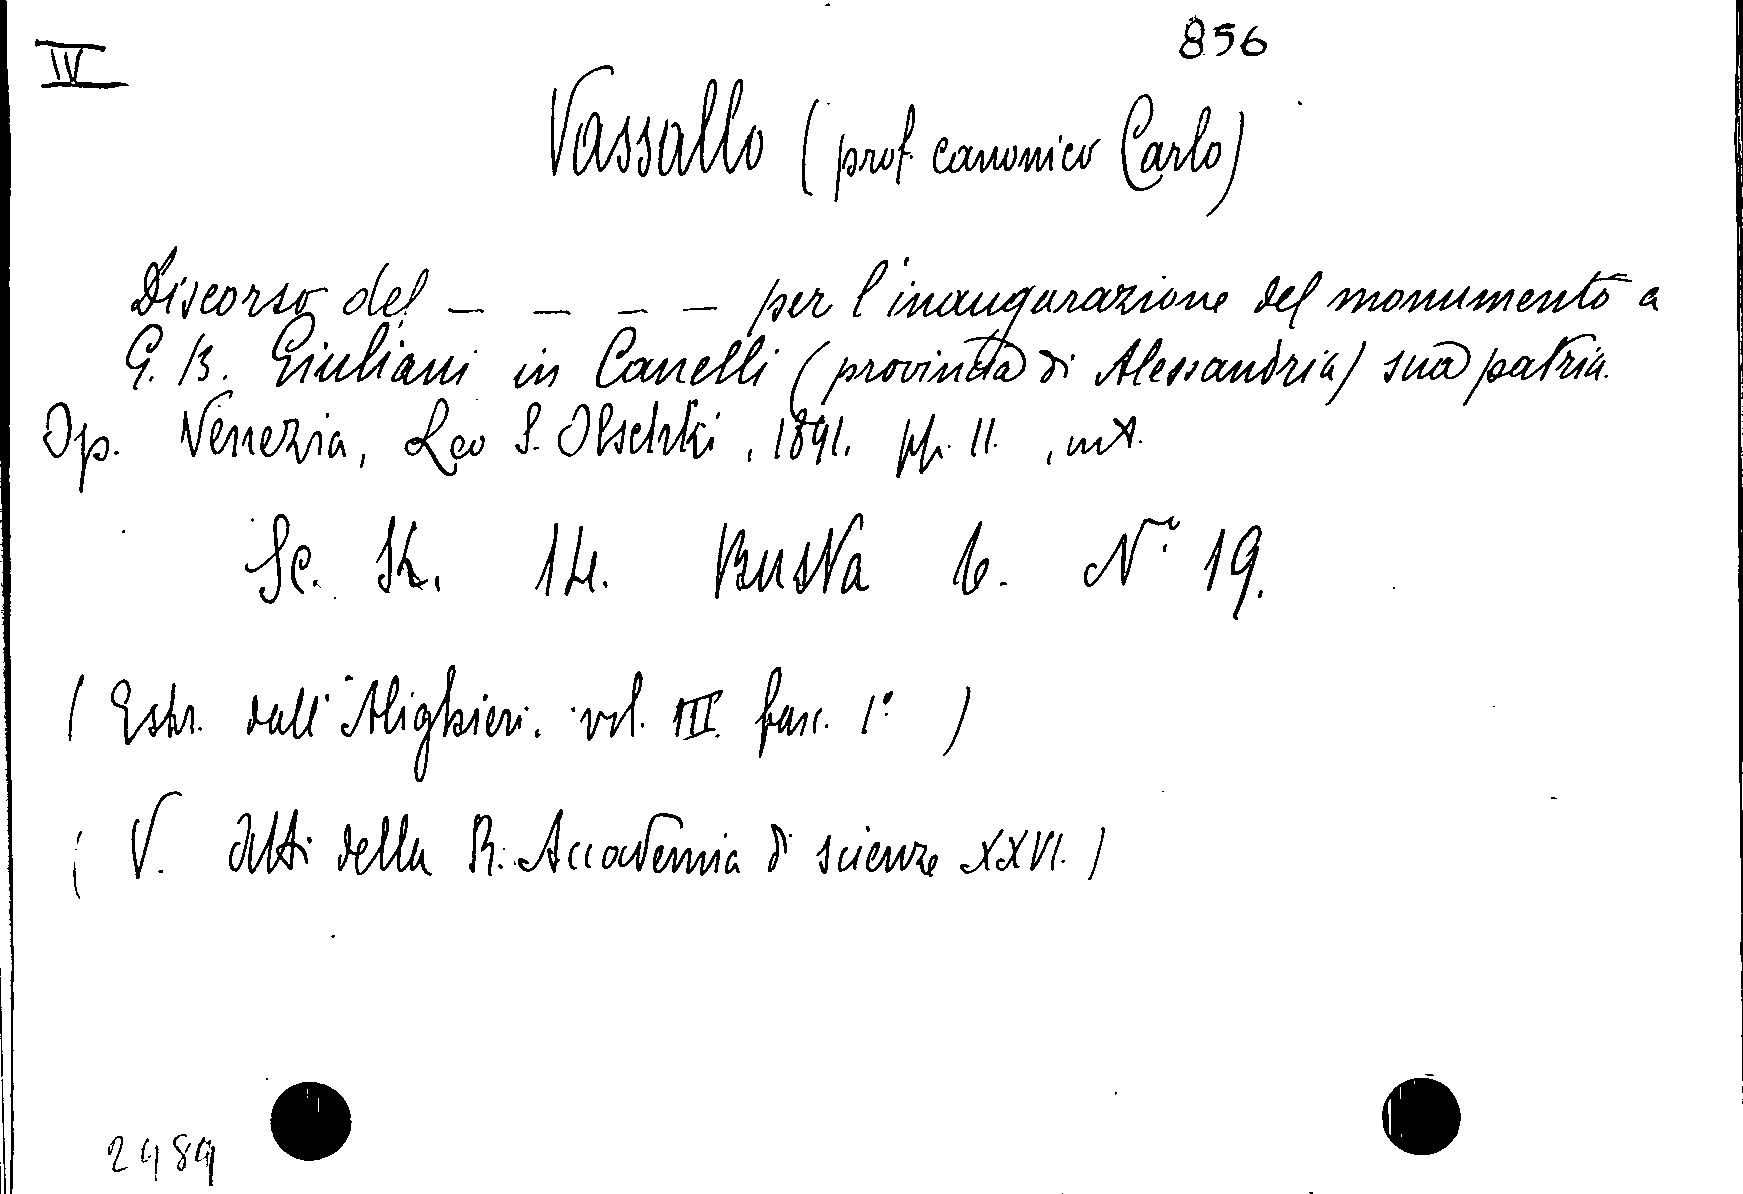 IV
856
Vassallo (prof. canonico Carlo)
Discorso del _ _ _ _ per l'inaugurazione del monumento a
G. B. Giuliani in Canelli (provincia di Alessandria) sua patria.
Op. Venezia, Leo S. Olschki, 1891. pp. 11.
Sc. 14. Busta 6. N° 19.
(Estr. dall'Alighieri. vol. III. fasc. 1°)
(V. Atti della R. Accademia di scienze XXVI.)